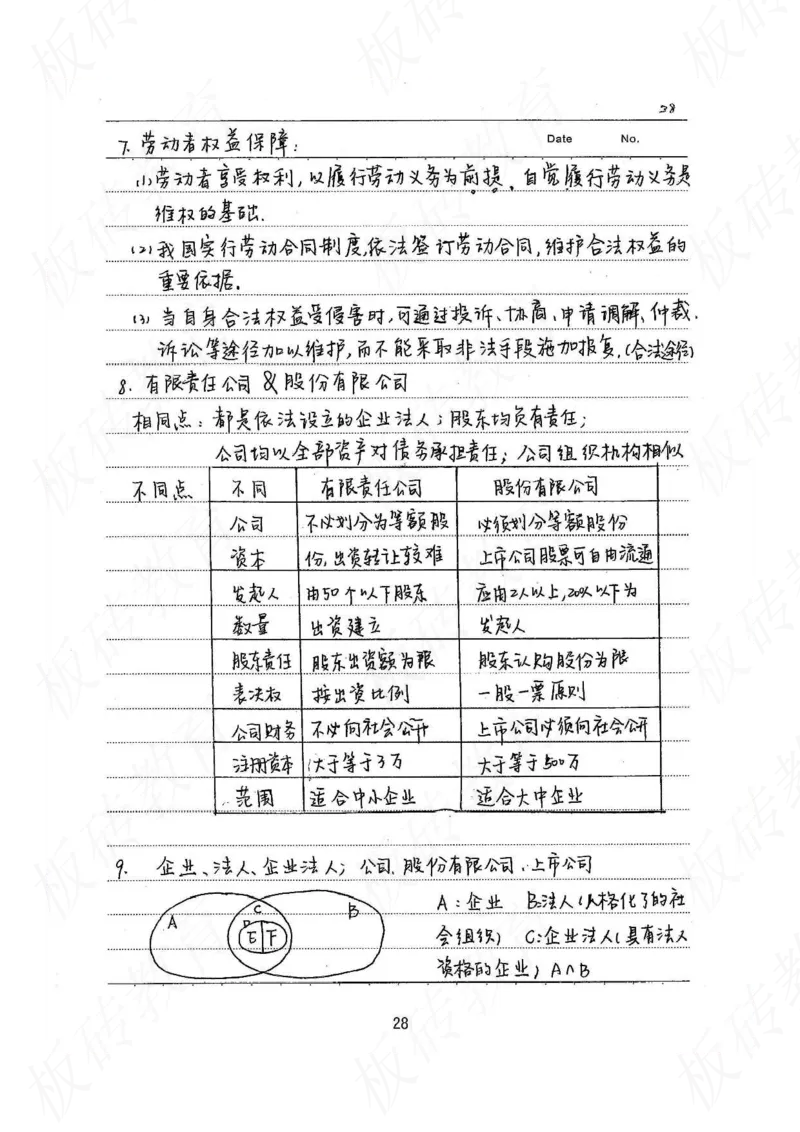 38
7. 劳动者权益保障:
Date No.
(1)劳动者享受权利,以履行劳动义务为前提。自觉履行劳动义务是
维权的基础.
(2)我国实行劳动合同制度,依法签订劳动合同,维护合法权益的
重要依据。
(3)当自身合法权益受侵害时,可通过投诉、协商、申请调解、仲裁.
诉讼等途径加以维护,而不能采取非法手段施加报复。(合法途径)
8. 有限责任公司 & 股份有限公司
相同点:都是依法设立的企业法人;股东均负有责任;
公司均以全部资产对债务承担责任;公司组织机构相似
不同点 不同 有限责任公司 股份有限公司
公司 不必划分为等额股 必须划分等额股份
资本 份,出资转让较难 上市公司股票可自由流通
发起人 由50个以下股东 应由2人以上,200人以下为
数量 出资建立 发起人
股东责任 股东出资额为限 股东认购股份为限
表决权 按出资比例 一股一票原则
公司财务 不必向社会公开 上市公司必须向社会公开
注册资本 大于等于3万 大于等于500万
范围 适合中小企业 适合大中企业
9. 企业、法人、企业法人;公司、股份有限公司、上市公司
A C B D E F
A:企业 B:法人(人格化了的社
会组织) C:企业法人(具有法人
资格的企业) A∩B
28
板砖教育